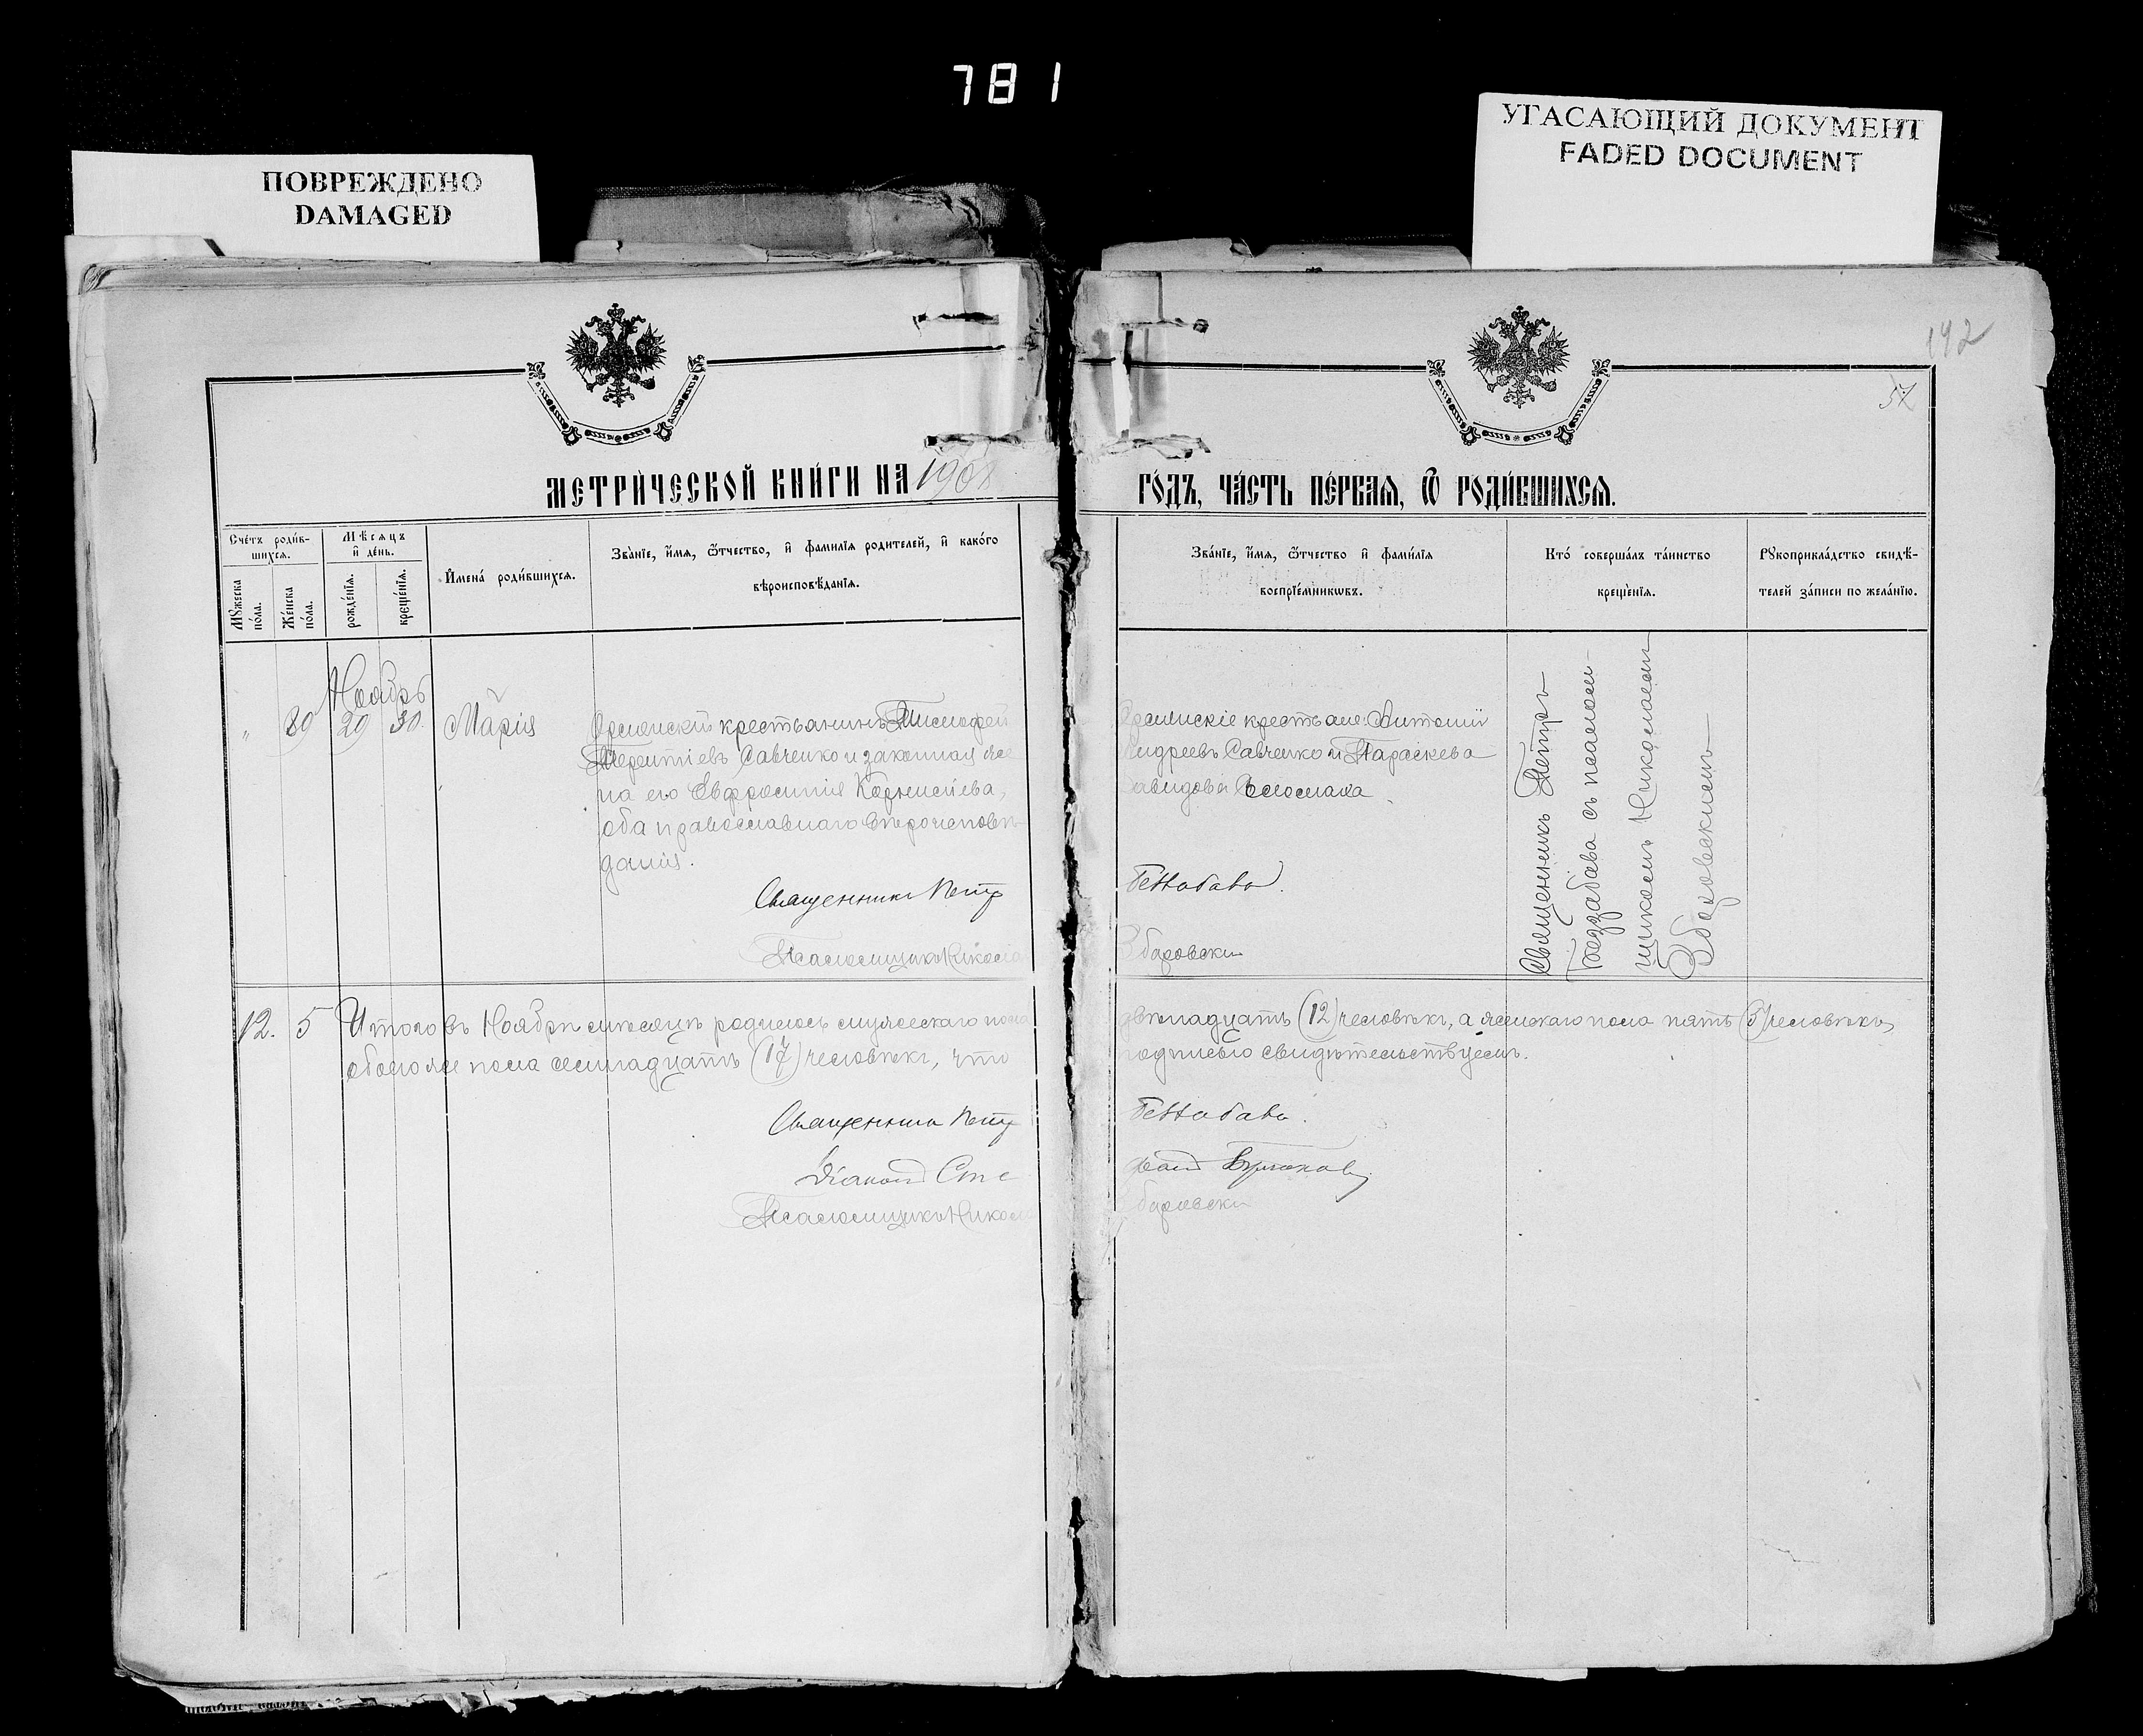 781
ПОВРЕЖДЕНО
DAMAGED
УГАСАЮЩИЙ ДОКУМЕНТ
FADED DOCUMENT
142
57
МЕТРИ́ЧЕСКОЙ КНИ́ГИ НА 1901
ГО́ДЪ, ЧА́СТЬ ПЕ́РВАѦ, Ѿ РОДИ́ВШИХСѦ.
Сче́тъ роди́в-
шихсѧ.
Мꙋжеска по́ла.
Же́нска по́ла.
Мѣ́сѧцъ
и҆ де́нь.
рожде́нїѧ.
креще́нїѧ.
И҆мена́ роди́вшихсѧ.
Зва́нїе, и҆́мѧ, ѻ҆́тчество, и҆ фами́лїѧ родителей, и҆ како́го
вѣроисповѣ́данїѧ.
Зва́нїе, и҆́мѧ, ѻ҆́тчество и҆ фами́лїѧ
воспрїе́мникѡвъ.
Кто́ соверша́лъ та́инство
креще́нїѧ.
Рꙋкоприкла́дство свидѣ́-
телей за́писи по жела́нїю.
Ноябрь
" 89 29 30. Марія
крестьянинъ Тимофей
Терентіевъ Савченко и законная же
на его Евфросинія Корнилиева,
оба православнаго вѣроисповѣ-
данія.
Священникъ Петр
Беззабава.
Псаломщикъ Никола
Збаровски
крестьяне: Антоній
Андреевъ Савченко и Параскева
Давидова
Священникъ Петръ
Беззабава съ псалом-
щикомъ Николаемъ
Збаровскимъ
12. 5 Итого въ Ноябрѣ мѣсяцѣ родилось мужескаго пола двѣнадцать (12) человѣкъ, а женскаго пола пять (5) человѣкъ,
обоего же пола семнадцать (17) человѣкъ, что подписью свидѣтельствуемъ.
Священникъ Петр Беззабава.
Діаконъ Сте
Псаломщикъ Никола Збаровски